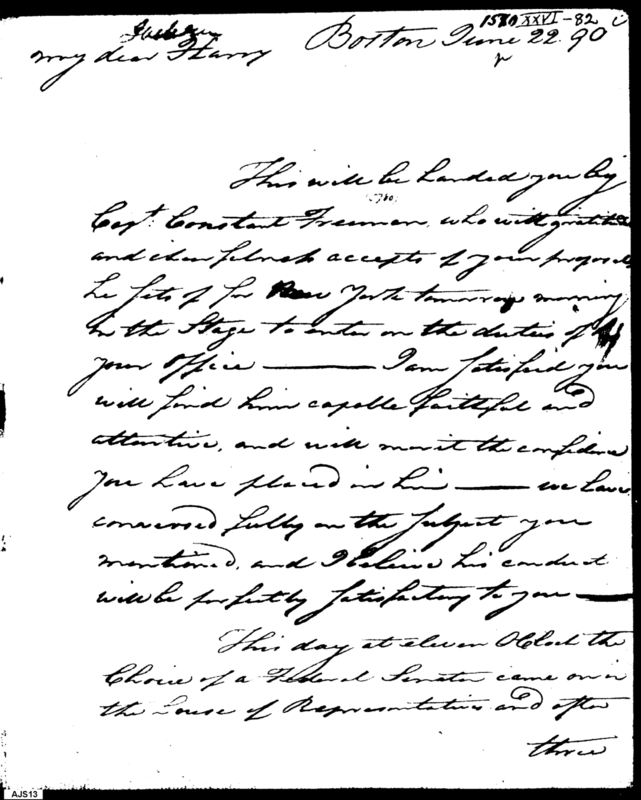 1580 XXVI-82
Jackson
Boston June 22. 90
my dear Harry
This will be handed you by
Capt. Constant Freeman, who with gratitude
and cheerfulness accepts of your proposals
he sets of for New York tomorrow morning
in the Stage to enter on the duties of
your Office — I am satisfied you
will find him capable faithful and
attentive, and will merit the confidence
you have placed in him — we have
conversed fully on the subject you
mentioned, and I believe his conduct
will be perfectly satisfactory to you —
This day at eleven OClock the
Choice of a Federal Senator came on in
the House of Representatives and after
three
AJS13